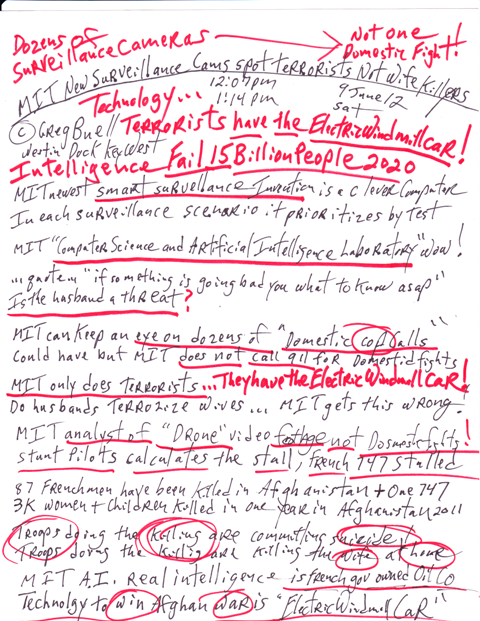 Dozens of
Surveillance Cameras
Not one
Domestic Fight!
MIT New Surveillance Cams spot terrorists Not wife killers
12:07pm
1:14 pm
9 June 12
Sat
Technology...
© Greg Buell
Westin Dock Key West
Terrorists have the ElectricWindmillCar!
Intelligence Fail 15 Billion People 2020
MIT newest smart survellance Invention is a clever Computer
In each surveillance scenario it prioritizes by test
MIT "Computer Science and Artificial Intelligence Laboratory" wow!
... quote... "if something is going bad you what to know asap"
Is the hasband a threat?
MIT can keep an eye on dozens of "Domestic cop calls"
Could have but MIT does not call 911 for Domestic fights
MIT only does Terrorists... They have the ElectricWindmillCar!
Do husbands Terrorize wives... MIT gets this wrong!
MIT analyst of "Drone" video footage not Dosmestic fights!
stunt Pilots calculates the stall, French 747 Stalled
87 Frenchmen have been killed in Afghanistan + One 747
3K women + Children killed in one year in Afghanistan 2011
Troops doing the killing are committing suicide!
Troops doing the killig are killing the wife at home
MIT A.I. Real intelligence is french gov owned Oil Co
Technolgy to win Afghan war is "ElectricWindmillCar"